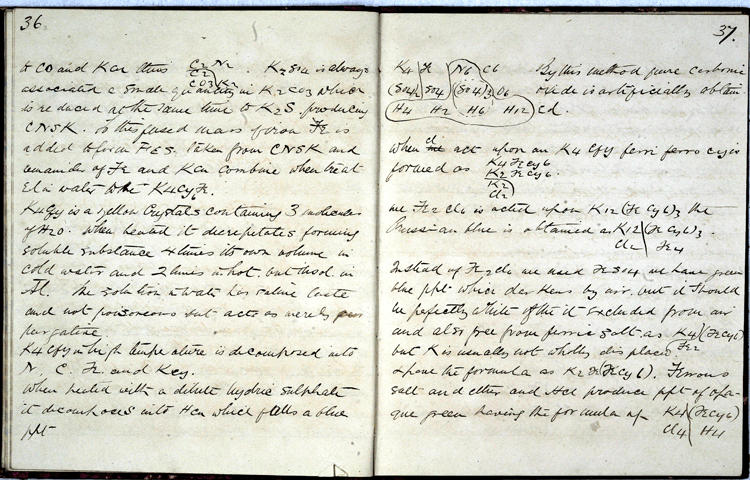 36.
to CO and KCn thus C2 N2 . K2SO4 is always
C2
CO3 K2
associated a small quantity in K2CO3 which
is reduced at the same time to K2S producing
CNSK. To this fused mass of iron Fe is
added to form FeS, taken from CNSK and
remainder of Fe and KCn combine when treat
Ed in water to be K4Cy6Fe.
K4Cfy is a yellow Crystals containing 3 molecules
of H2O. When heated it decrepitates forming
soluble substance 4 times its own volume in
cold water and 2 times in hot, but insol. in
Al. The solution in water has saline taste
and not poisoneous but acts as merely
purgative.
K4Cfy in high temperature is decomposed into
N, C, Fe and KCy.
When heated with a dilute hydric sulphate
it decomposes into HCn which falls a blue
ppt
37.
K4 Fe N6 C6 By this method pure carbonic
(SO4) SO4 (SO4)3 O6 oxide is artificially obtain
H4 H2 H6 H12 Ed.
When Cl act upon an K4Cfy ferri ferro cy is
formed as K4 FeCy6
K2 FeCy6.
K2
Cl2
we Fe2Cl6 is acted upon K12 (FeCy6)3 the
Prussian blue is obtained as K12 (FeCy6)3.
Cl12 Fe4
Instead of Fe2Cl6 we used FeSO4 we have green
blue ppt which darkens by air, but it should
be perfectly white if the it excluded from air
and also free from ferric salt as K4 (FeCy6)
Fe2
but K is usually not wholly displaced
& have the formula as K2Fe(FeCy6). Ferrous
salt and ether and HCl produce ppt of opa-
que green having the formula of K4 (FeCy6)
Cl4 H4